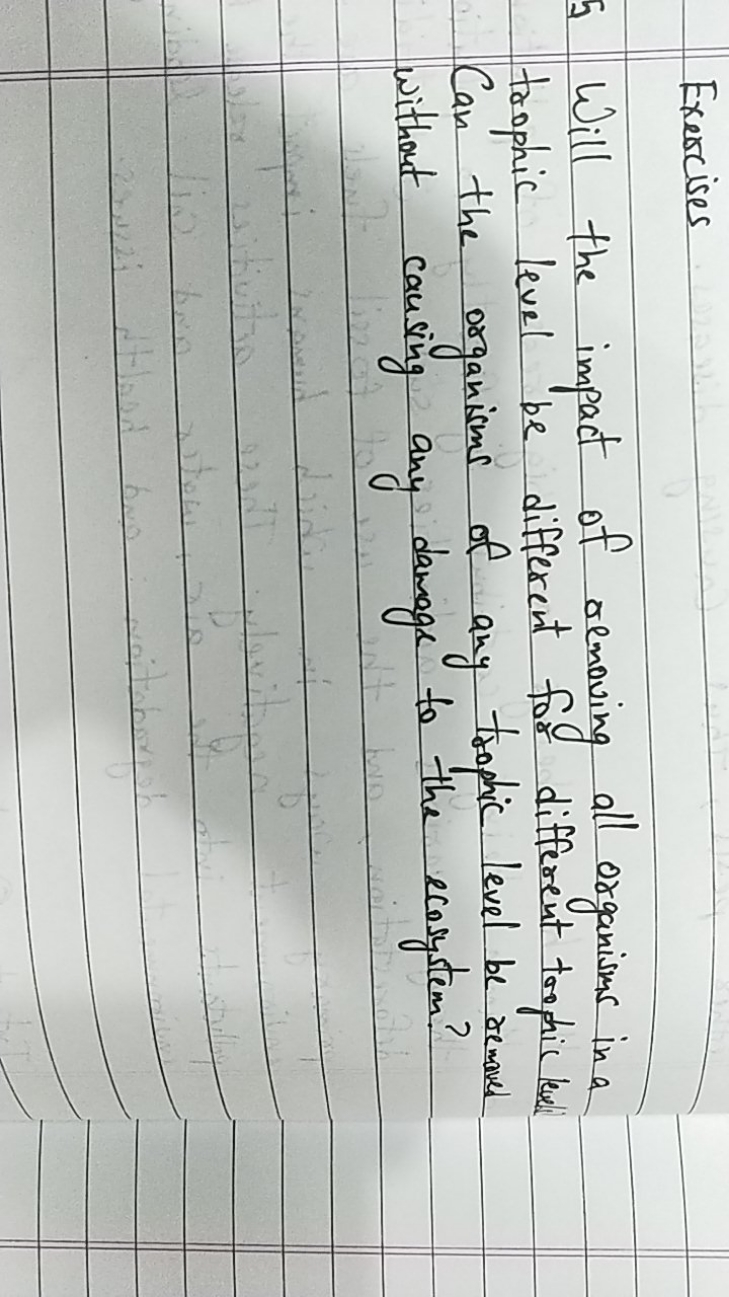 Exercises
5 Will the impact of removing all organisms in a
trophic level be different for different trophic level
Can the organisms of any trophic level be removed
without causing any damage to the ecosystem?